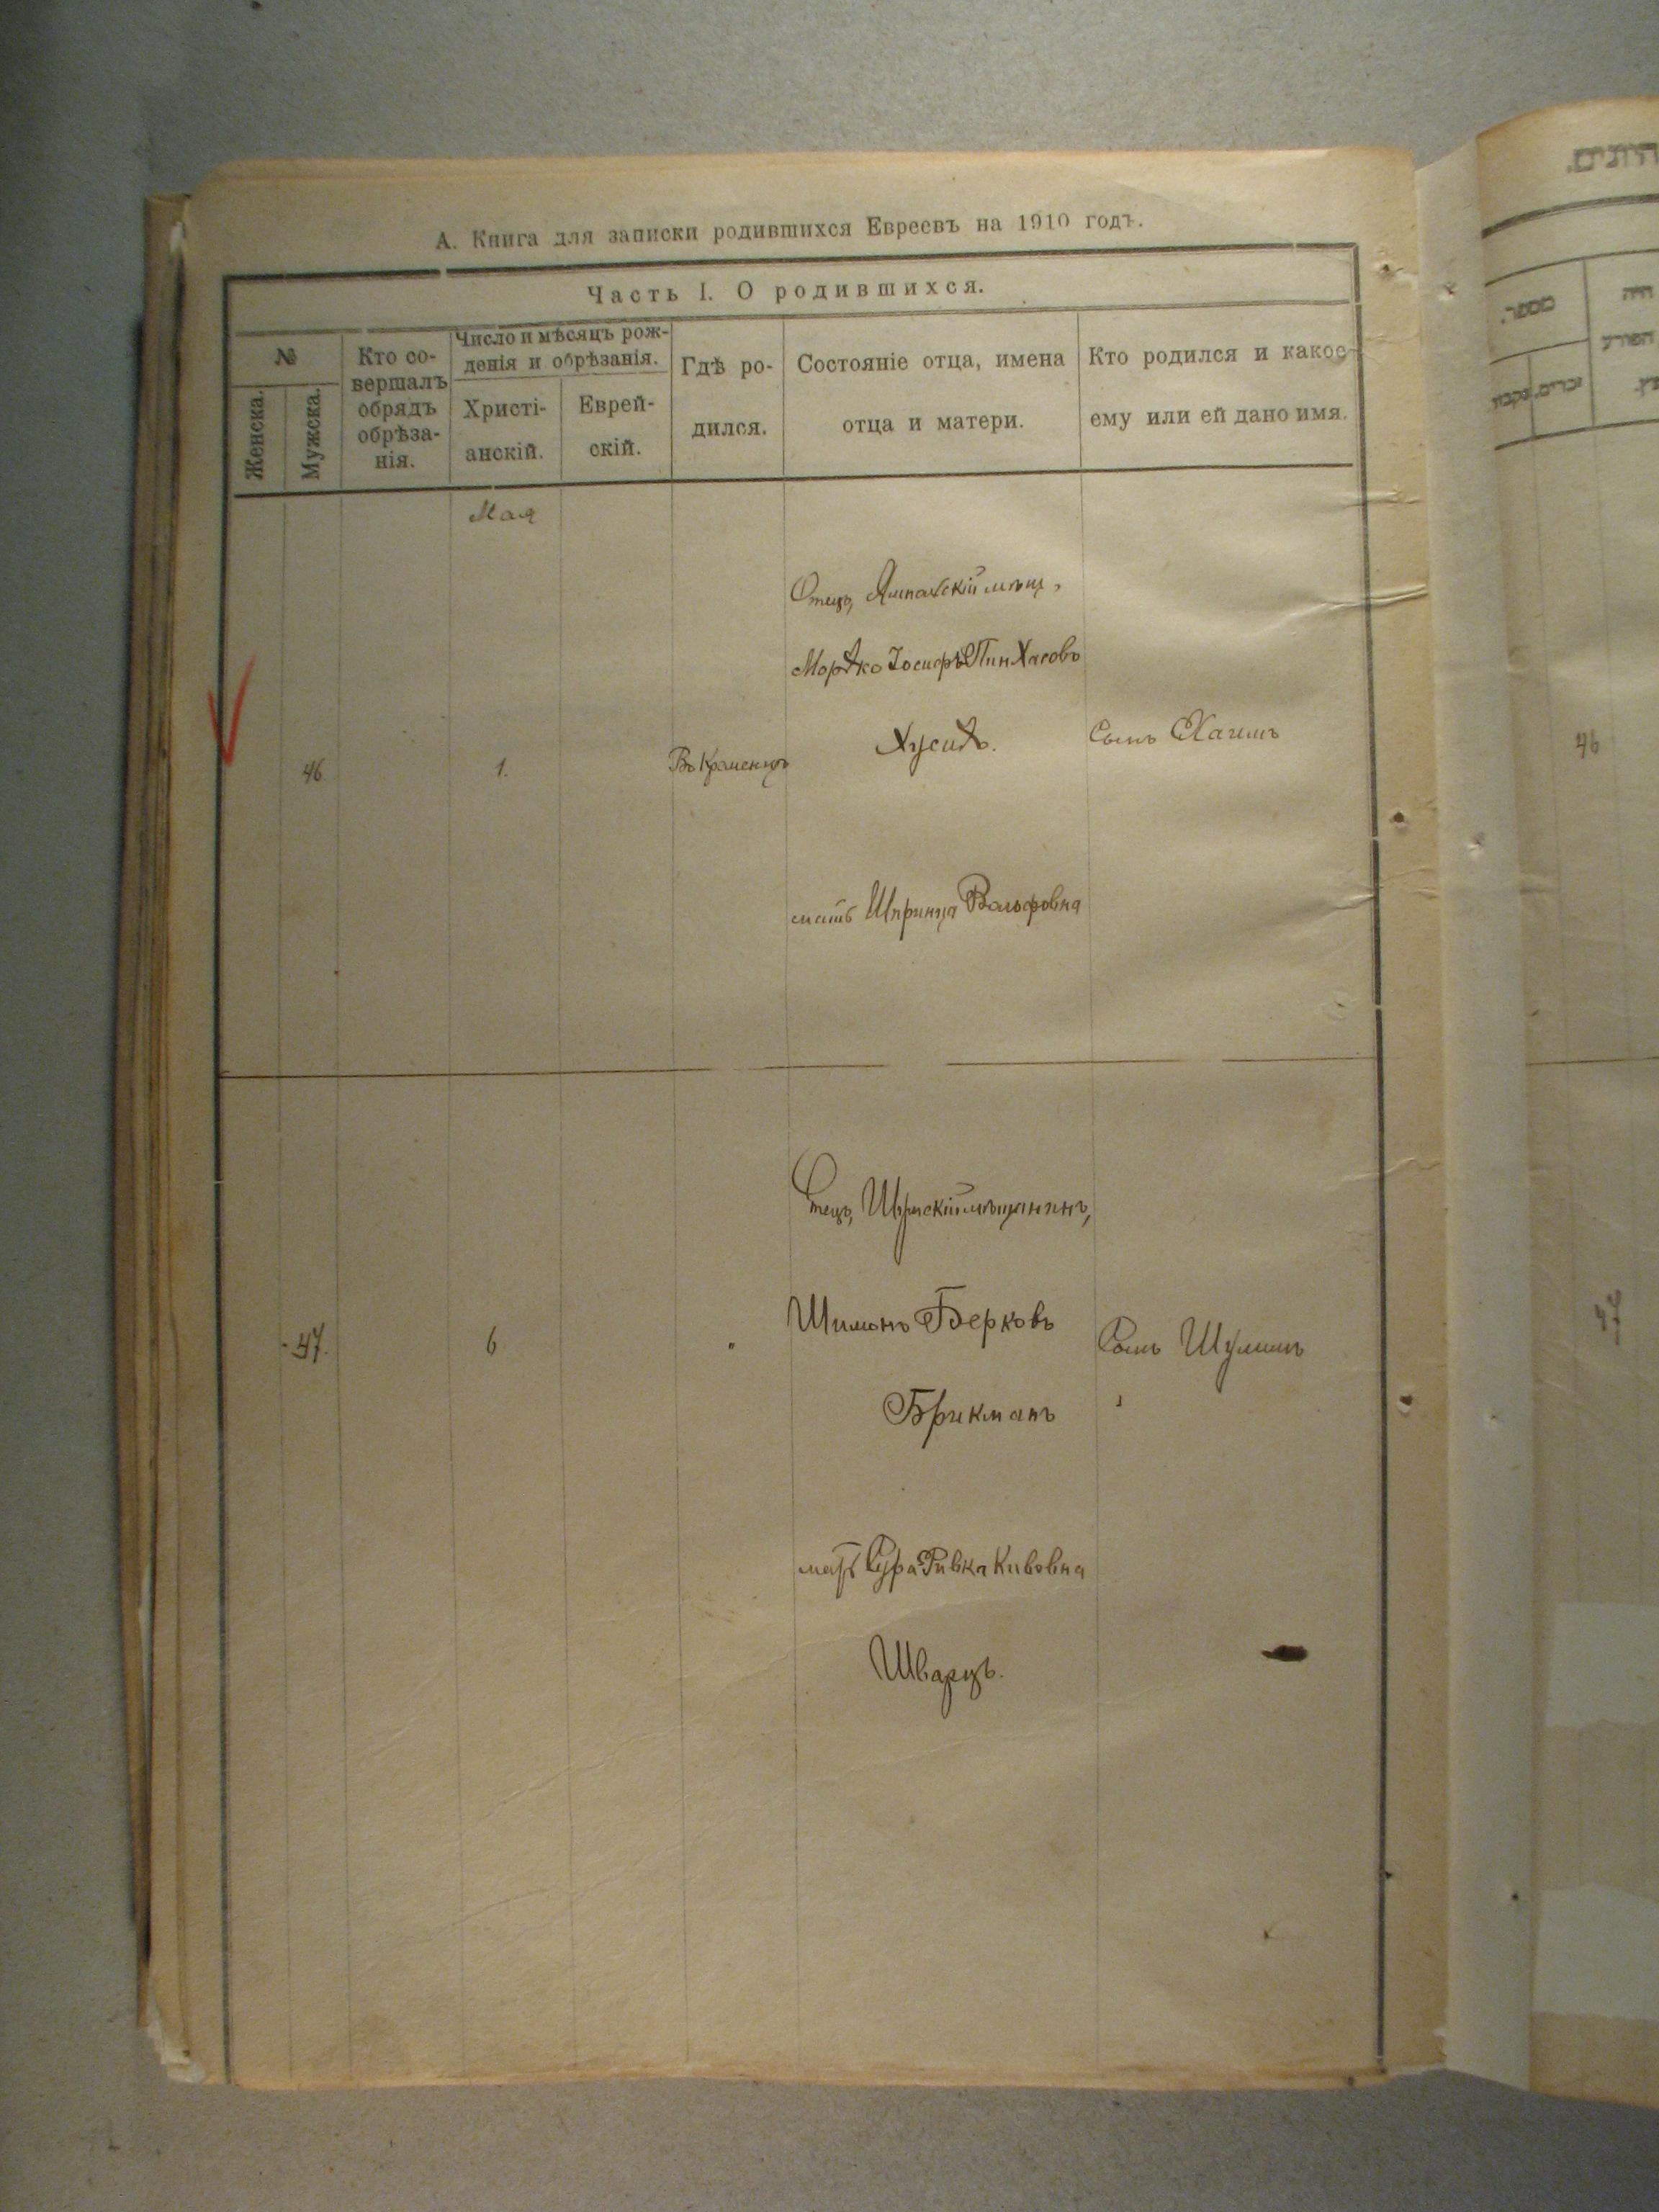 А. Книга для записки родившихся Евреевъ на 1910 годъ.
Часть I. О родившихся.
№
Женска.
Мужска.
Кто со-
вершалъ
обрядъ
обрѣза-
нія.
Число и мѣсяцъ рож-
денія и обрѣзанія.
Христі-
анскій.
Еврей-
скій.
Гдѣ ро-
дился.
Состояніе отца, имена
отца и матери.
Кто родился и какое
ему или ей дано имя.
Мая
46
1.
Въ Кременцѣ
Отецъ, Ямпольскій мѣщ,
Мордко Іосифъ Пинхасовъ
Хусидъ.
мать Шпринца Вольфовна
Сынъ Хаимъ
47.
6
"
Отецъ, мѣщанинъ,
Шимонъ Берковъ
Брикманъ
мать Сура Ривка Кивовна
Шварцъ.
Сынъ Шулимъ
מספר.
זכרים.
46
47